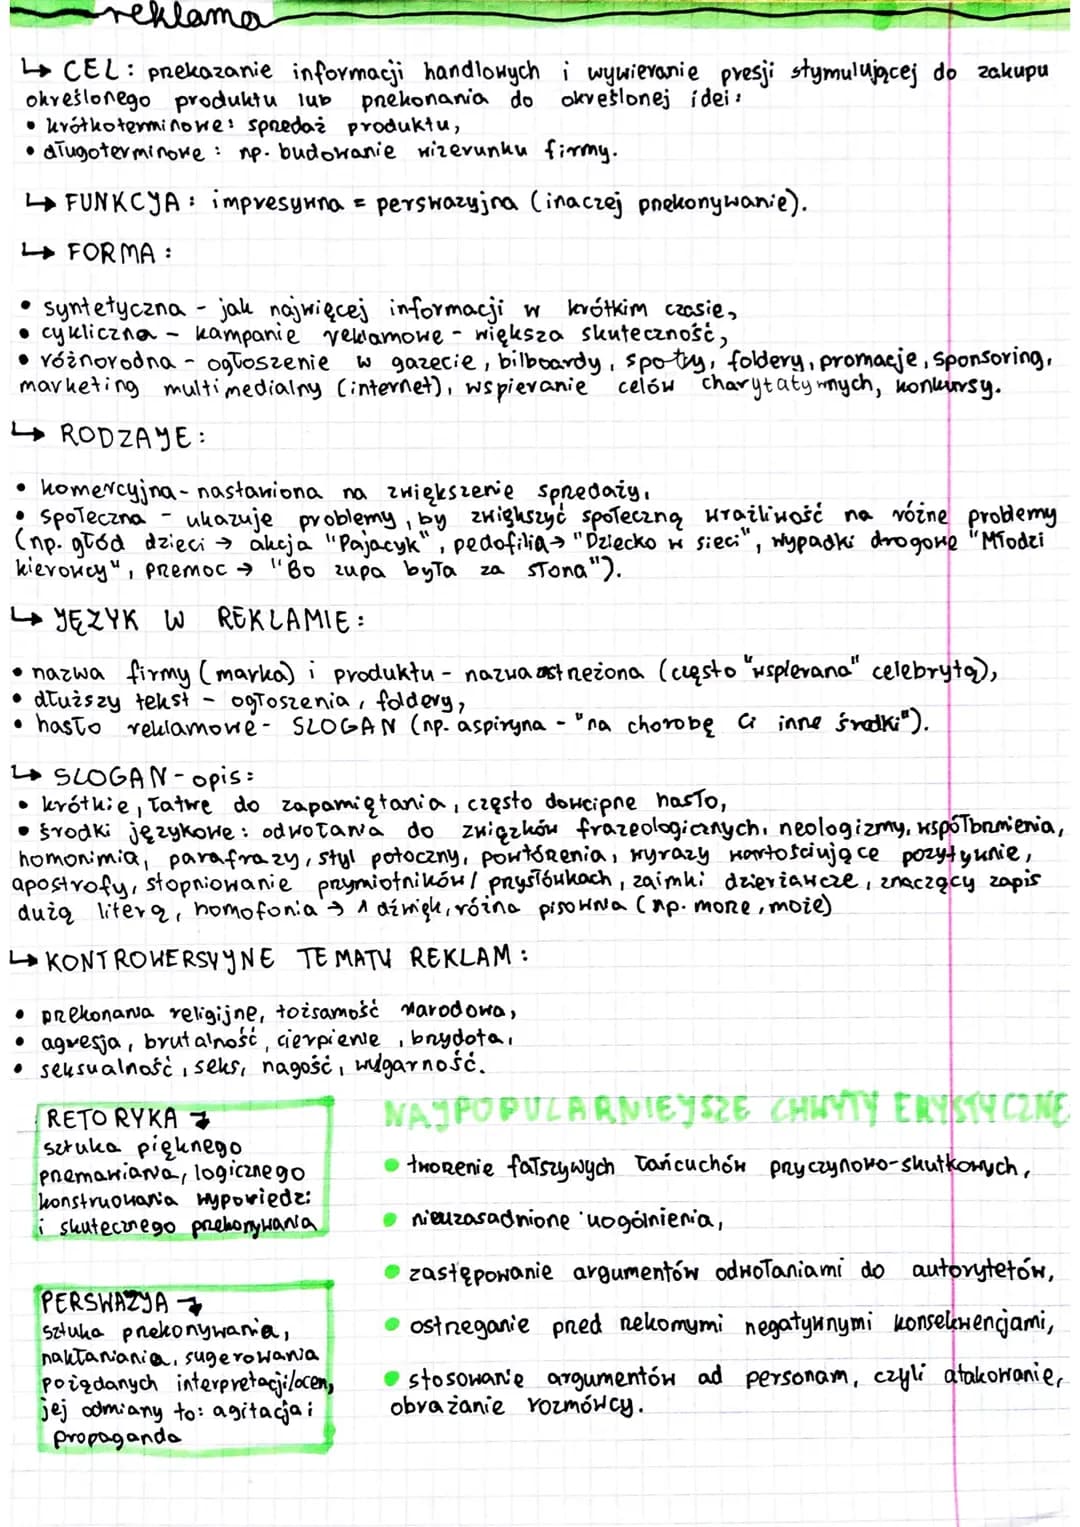 reklama
↳ CEL: przekazanie informacji handlowych i wywieranie presji stymulującej do zakupu
określonego produktu lub przekonania do określonej idei:
• krótkoterminowe: sprzedaż produktu,
• długoterminowe: np. budowanie wizerunku firmy.
↳ FUNKCJA: impresywna = perswazyjna (inaczej przekonywanie).
↳ FORMA:
• syntetyczna - jak najwięcej informacji w krótkim czasie,
• cykliczna - kampanie reklamowe - większa skuteczność,
• różnorodna - ogłoszenie w gazecie, bilboardy, spoty, foldery, promacje, sponsoring,
marketing multimedialny (internet), wspieranie celów charytatywnych, konkursy.
↳ RODZAJE:
• komercyjna - nastawiona na zwiększenie sprzedaży,
• społeczna - ukazuje problemy, by zwiększyć społeczną wrażliwość na różne problemy
(np. głód dzieci → akcja "Pajacyk", pedofilia → "Dziecko w sieci", wypadki drogowe "Młodzi
kierowcy", przemoc → "Bo zupa była za słona").
↳ JĘZYK W REKLAMIE:
• nazwa firmy (marka) i produktu - nazwa zastrzeżona (często "wspierana" celebrytą),
• dłuższy tekst - ogłoszenia, foldery,
• hasło reklamowe - SLOGAN (np. aspiryna - "na chorobę Ci inne środki").
↳ SLOGAN - opis:
• krótkie, łatwe do zapamiętania, często dowcipne hasło,
• środki językowe: odwołania do związków frazeologicznych, neologizmy, współbrzmienia,
homonimia, parafrazy, styl potoczny, powtórzenia, wyrazy wartościujące pozytywnie,
apostrofy, stopniowanie przymiotników/ przysłówkach, zaimki dzierżawcze, znaczący zapis
dużą literą, homofonia → 1 dźwięk, różna pisownia (np. morze, może)
↳ KONTROWERSYJNE TEMATY REKLAM:
• przekonania religijne, tożsamość narodowa,
• agresja, brutalność, cierpienie, brzydota,
• seksualność, seks, nagość, wulgarność.
RETORYKA →
sztuka pięknego
przemawiania, logicznego
konstruowania wypowiedzi
i skutecznego przekonywania
PERSWAZJA →
sztuka przekonywania,
nakłaniania, sugerowania
pożądanych interpretacji/ocen,
jej odmiany to: agitacja i
propaganda
NAJPOPULARNIEJSZE CHWYTY ERYSTYCZNE
• tworzenie fałszywych łańcuchów przyczynowo-skutkowych,
• nieuzasadnione uogólnienia,
• zastępowanie argumentów odwołaniami do autorytetów,
• ostrzeganie przed rzekomymi negatywnymi konsekwencjami,
• stosowanie argumentów ad personam, czyli atakowanie,
obrażanie rozmówcy.